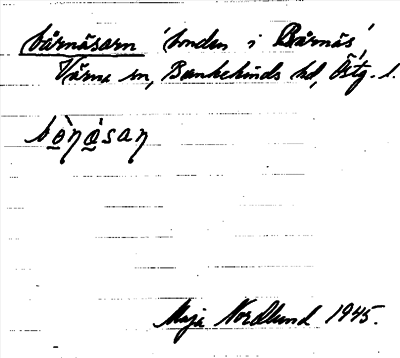 bårnäsarn 'bonden i Bårnäs',
Värna sn, Bankekinds hd, Östg. l.
bò̱ŋá̱san
Maja Nordlund 1945.